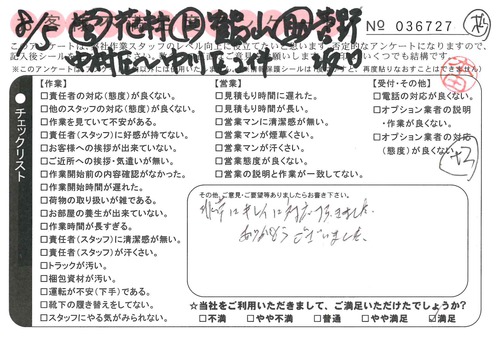 8/5 営 花村 作 鶴山 助 菅野
№ 036727
このアンケートは、弊社作業スタッフのレベル向上に役立てたいと思います。否定的なアンケートになりますので、
チェックリスト
【作業】
□責任者の対応(態度)が良くない。
□他のスタッフの対応(態度)が良くない。
□作業を見ていて不安がある。
□責任者(スタッフ)に好感が持てない。
□お客様への挨拶が出来ていない。
□ご近所への挨拶・気遣いが無い。
□作業開始前の内容確認がなかった。
□作業開始時間が遅れた。
□荷物の取り扱いが雑である。
□お部屋の養生が出来ていない。
□作業時間が長すぎる。
□責任者(スタッフ)に清潔感が無い。
□責任者(スタッフ)が汗くさい。
□トラックが汚い。
□梱包資材が汚い。
□運転が不安(下手)である。
□靴下の履き替えをしてない。
□スタッフにやる気がみられない。
【営業】
□見積もり時間に遅れた。
□見積もり時間が長い。
□営業マンに清潔感が無い。
□営業マンが煙草くさい。
□営業マンが汗くさい。
□営業態度が良くない。
□営業の説明と作業が一致してない。
【受付・その他】
□電話の対応が良くない。
□オプション業者の説明
・作業が良くない。
□オプション業者の対応
(態度)が良くない。
その他、ご意見・ご要望等ありましたらお書き下さい。
非常にキレイに対応頂きました。
ありがとうございました。
☆当社をご利用いただきまして、ご満足いただけたでしょうか?
□不満 □やや不満 □普通 □やや満足 ☑満足